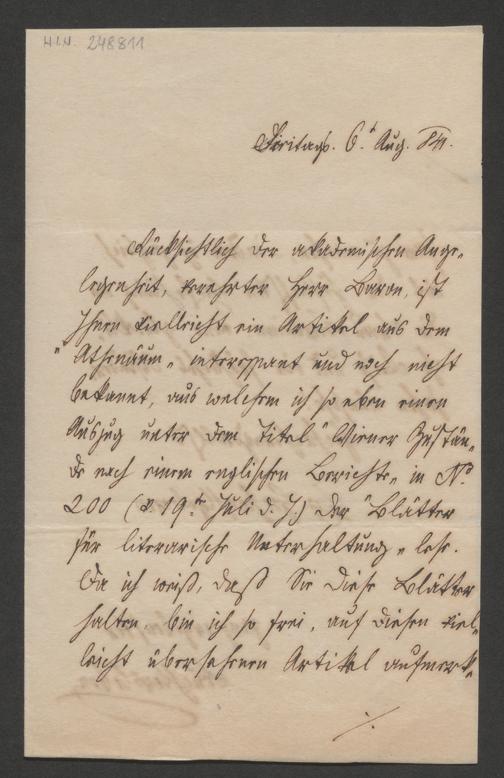 H.I.N. 248811
Freitags. 6.t Aug.
Rücksichtlich der akademischen Ange-
legenheit, verehrter Herr Baron, ist
Ihnen vielleicht ein Artikel aus dem
"Athenäum" interessant und noch nicht
bekannt, aus welchem ich so eben einen
Auszug unter dem Titel "Wiener Zustän-
de nach einem englischen Berichte" in No.
200 (v. 19.ten Juli d. J.) der "Blätter
für literarische Unterhaltung" lese.
Da ich weiß, daß Sie diese Blätter
halten, bin ich so frei, auf diesen viel-
leicht übersehenen Artikel aufmerk-
./.